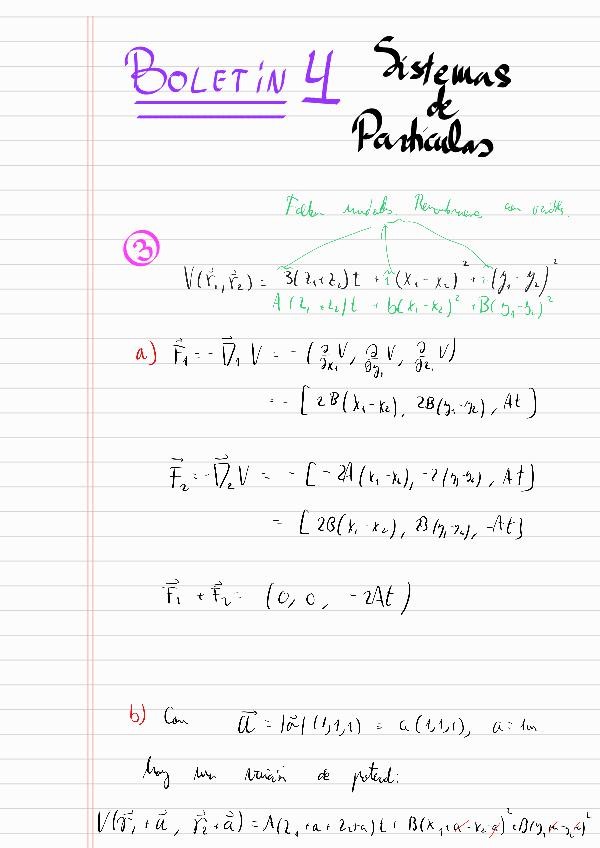 BOLETÍN 4
Sistemas de Partículas
Faltan unidades. Renombramos con
③
V(r⃗₁, r⃗₂) = 3(z₁+z₂)t + 1(x₁-x₂)² + 1(y₁-y₂)²
A(z₁+z₂)t + b(x₁-x₂)² + B(y₁-y₂)²
a) F⃗₁ = -∇⃗₁ V = -(∂/∂x₁ V, ∂/∂y₁ V, ∂/∂z₁ V)
= -[2B(x₁-x₂), 2B(y₁-y₂), At]
F⃗₂ = -∇⃗₂ V = -[-2A(x₁-x₂), -2(y₁-y₂), At]
= [2B(x₁-x₂), B(y₁-y₂), -At]
F⃗₁ + F⃗₂ = (0, 0, -2At)
b) Con a⃗ = |a⃗|(1,1,1) = a(1,1,1), a = 1m
hay un variación de potencial:
V(r⃗₁+a⃗, r⃗₂+a⃗) = A(z₁+a+z₂+a)t + B(x₁+a-x₂-a)² + B(y₁+a-y₂-a)²